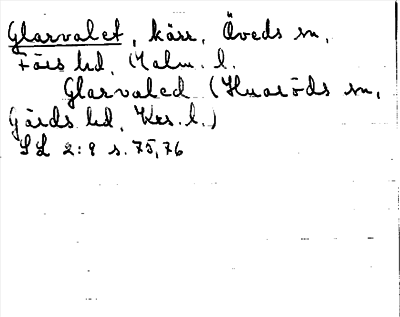 Glarvalet, kärr, Öveds sn,
Färs hd, Malm. l.
Glarvaled (Huaröds sn,
Gärds hd, Krs. l.)
SL 2:8 s. 75, 76